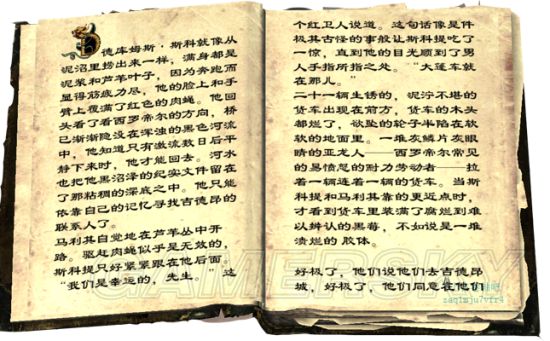 德库姆斯·斯科就像从
泥沼里捞出来一样，满身都是
泥浆和芦苇叶子，因为奔跑而
显得筋疲力尽，他的脸上和手
臂上覆满了红色的肉蝇。他回
头看了看西罗帝尔的方向，桥
已渐渐隐没在浑浊的黑色河流
中，他知道只有激流数日后平
静下来时，他才能回去。河水
也把他黑沼泽的纪实文件留在
了那粘稠的深底之中。他只能
依靠自己的记忆寻找吉德昂的
联系人了。
马利其自觉地在芦苇丛中开
路。驱赶肉蝇似乎是无效的，
斯科提只好紧紧跟在他后面。
“我们是幸运的，先生。”这
个红卫人说道。这句话像是件
极其古怪的事般让斯科提吃了
一惊，直到他的目光顺到了男
人手指所指之处。“大篷车就
在那儿。”
二十一辆生锈的，泥泞不堪的
货车出现在前方，货车的木头
都烂了，欲坠的轮子半陷在软
软的地面里。一堆灰鳞片灰眼
睛的亚龙人——西罗帝尔常见
的易愤怒的耐力劳动者——拉
着一辆连着一辆的货车。当斯
科提和马利其靠的更近点时，
才看到货车里装满了腐烂到难
以辨认的黑莓，不如说是一堆
溃烂的胶体。
好极了，他们说他们去吉德昂
城，好极了，他们同意在他们
GAMERSKY
zaq1mju7vfr4